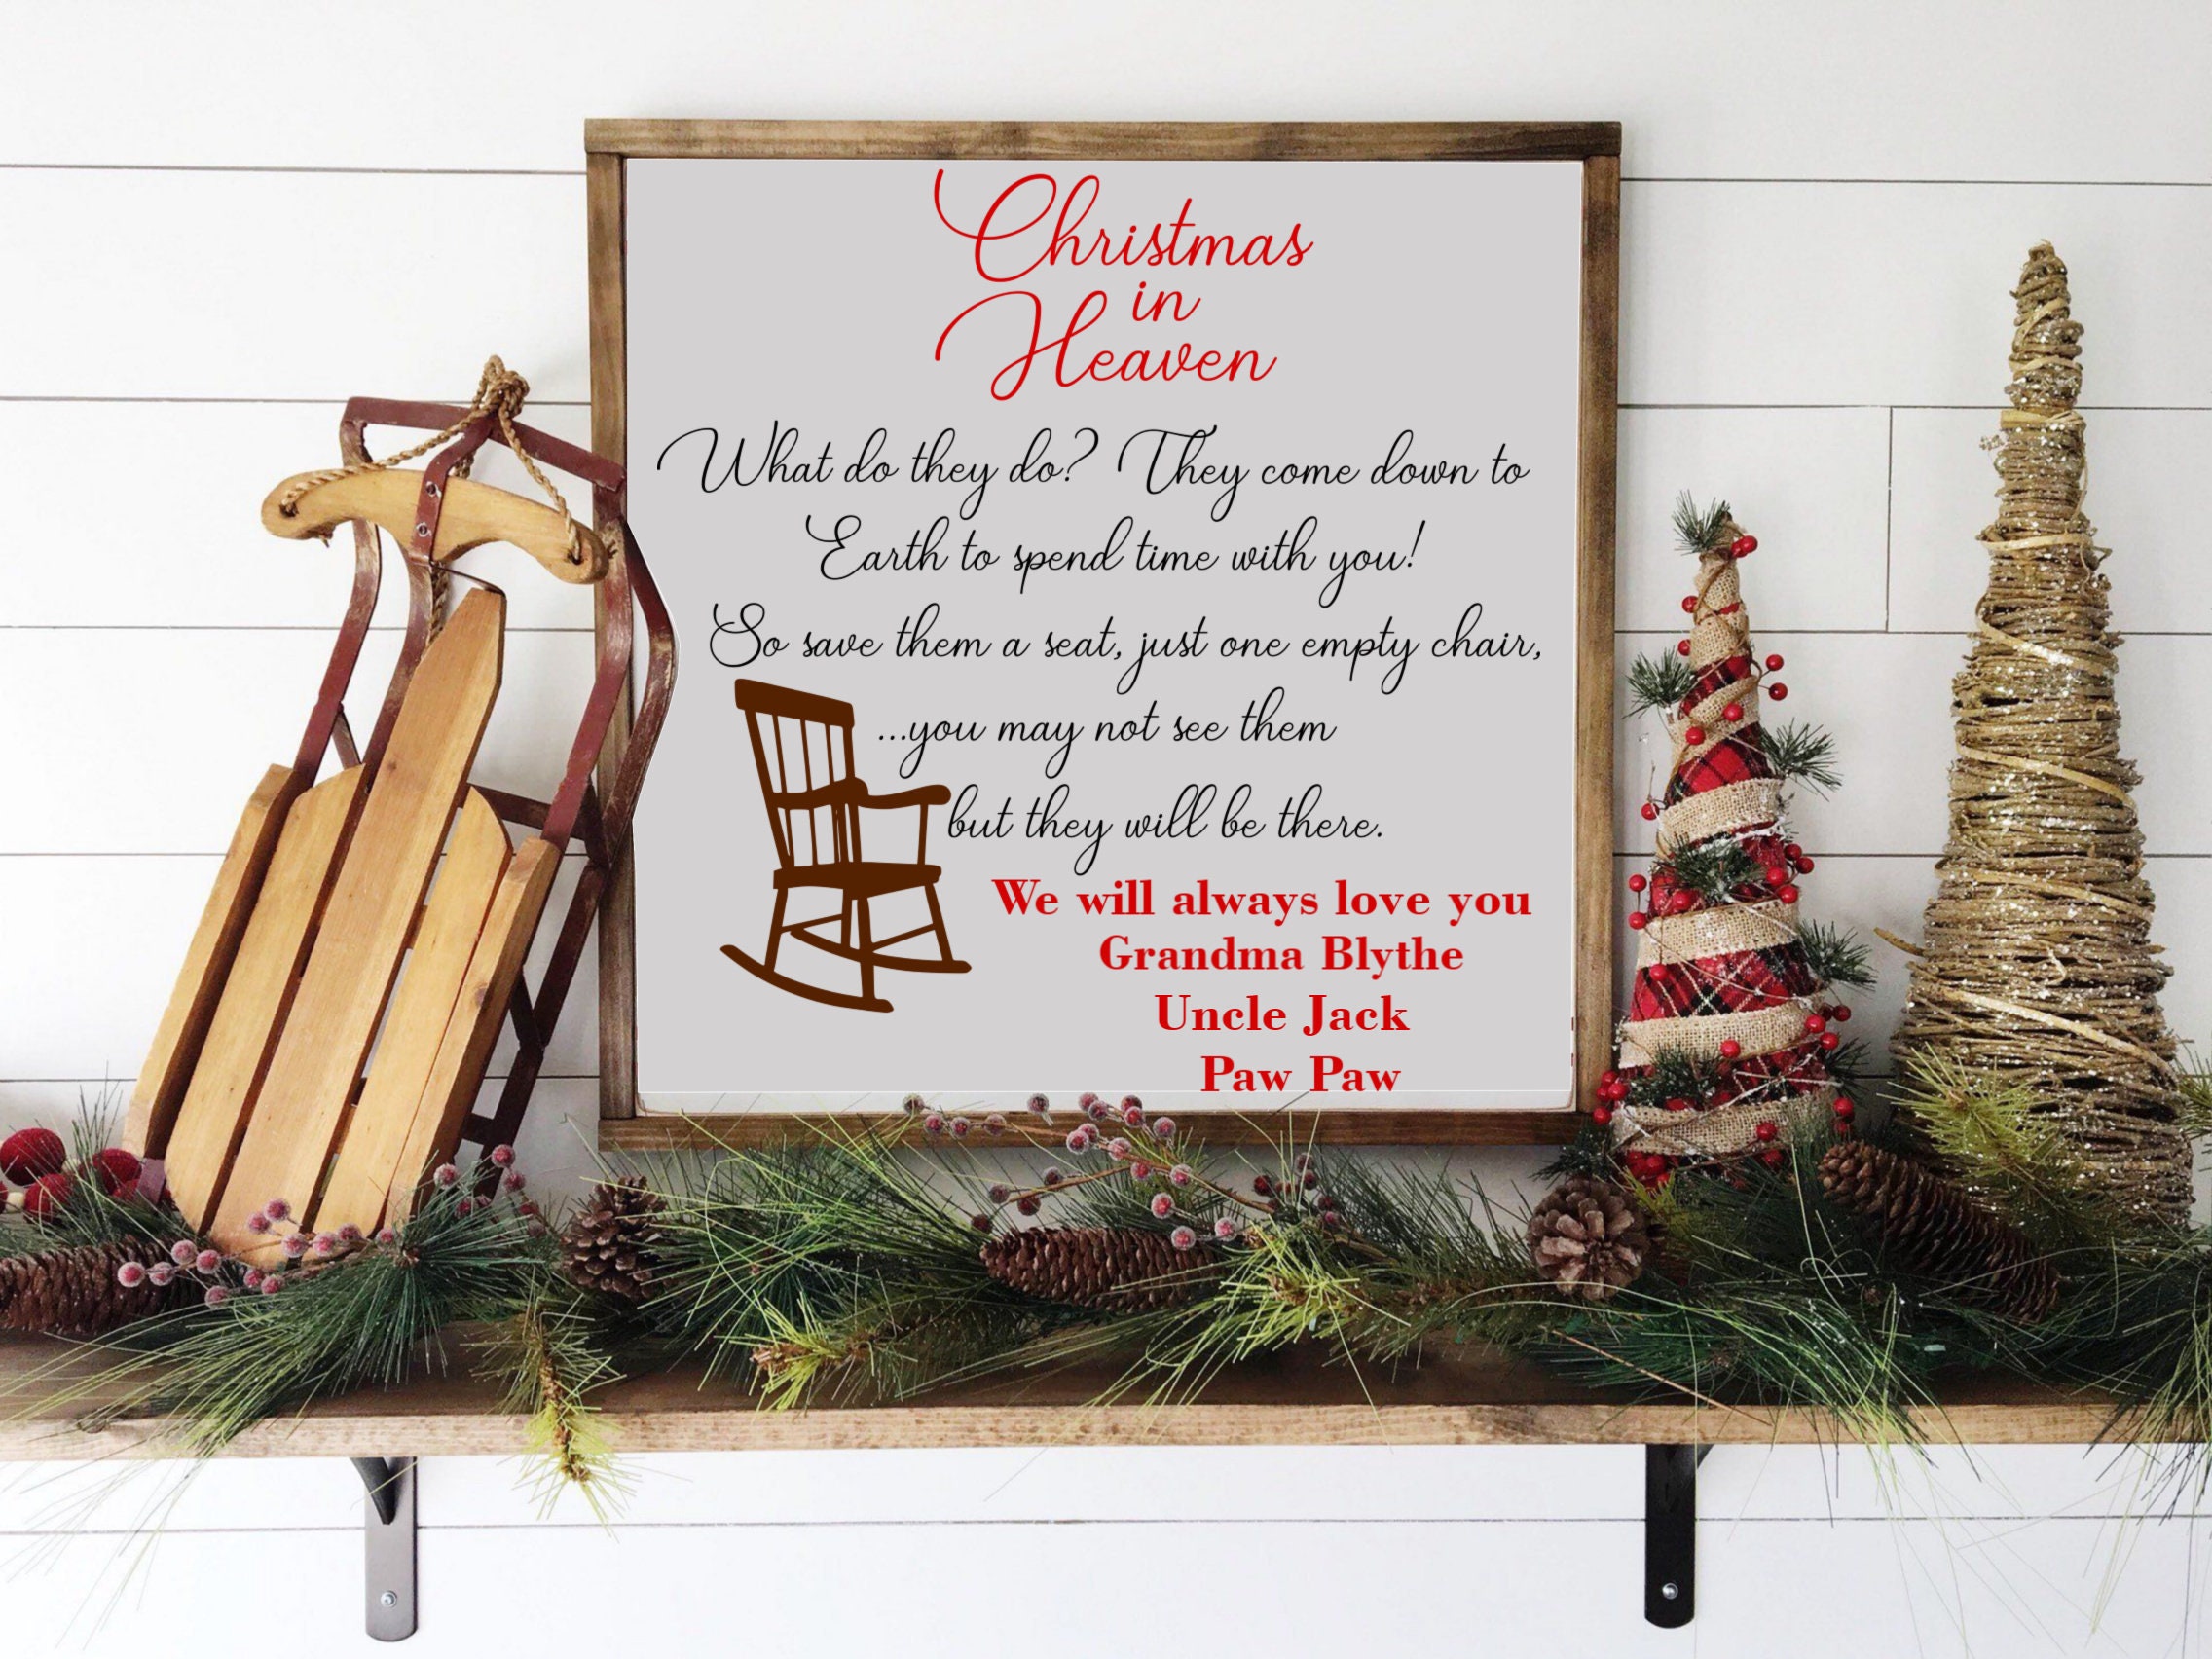 Christmas
in
Heaven
What do they do? They come down to
Earth to spend time with you!
So save them a seat, just one empty chair,
...you may not see them
but they will be there.
We will always love you
Grandma Blythe
Uncle Jack
Paw Paw